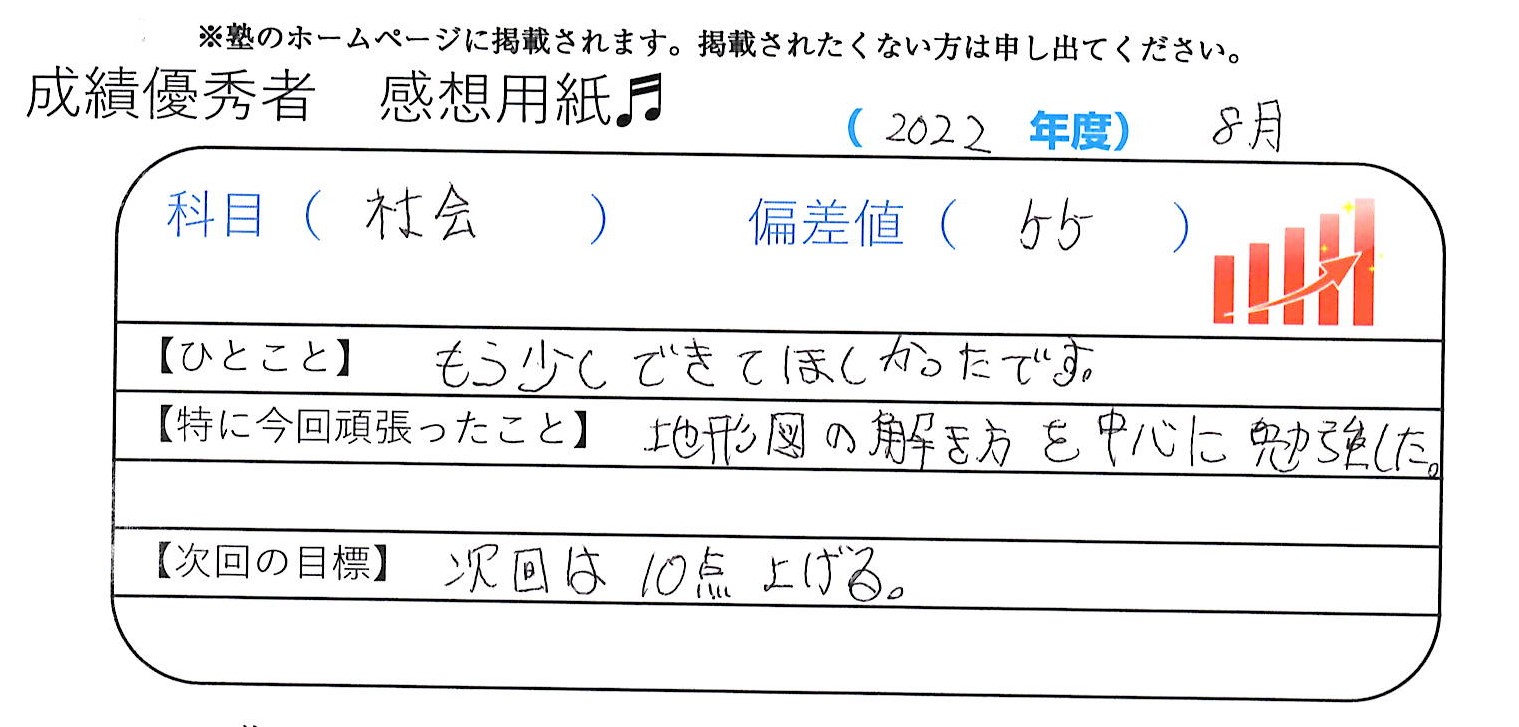 ※塾のホームページに掲載されます。掲載されたくない方は申し出てください。
成績優秀者 感想用紙♬
(2022年度) 8月
科目( 社会 ) 偏差値( 55 )
【ひとこと】 もう少しできてほしかったです。
【特に今回頑張ったこと】 地形図の解き方を中心に勉強した。
【次回の目標】 次回は10点上げる。